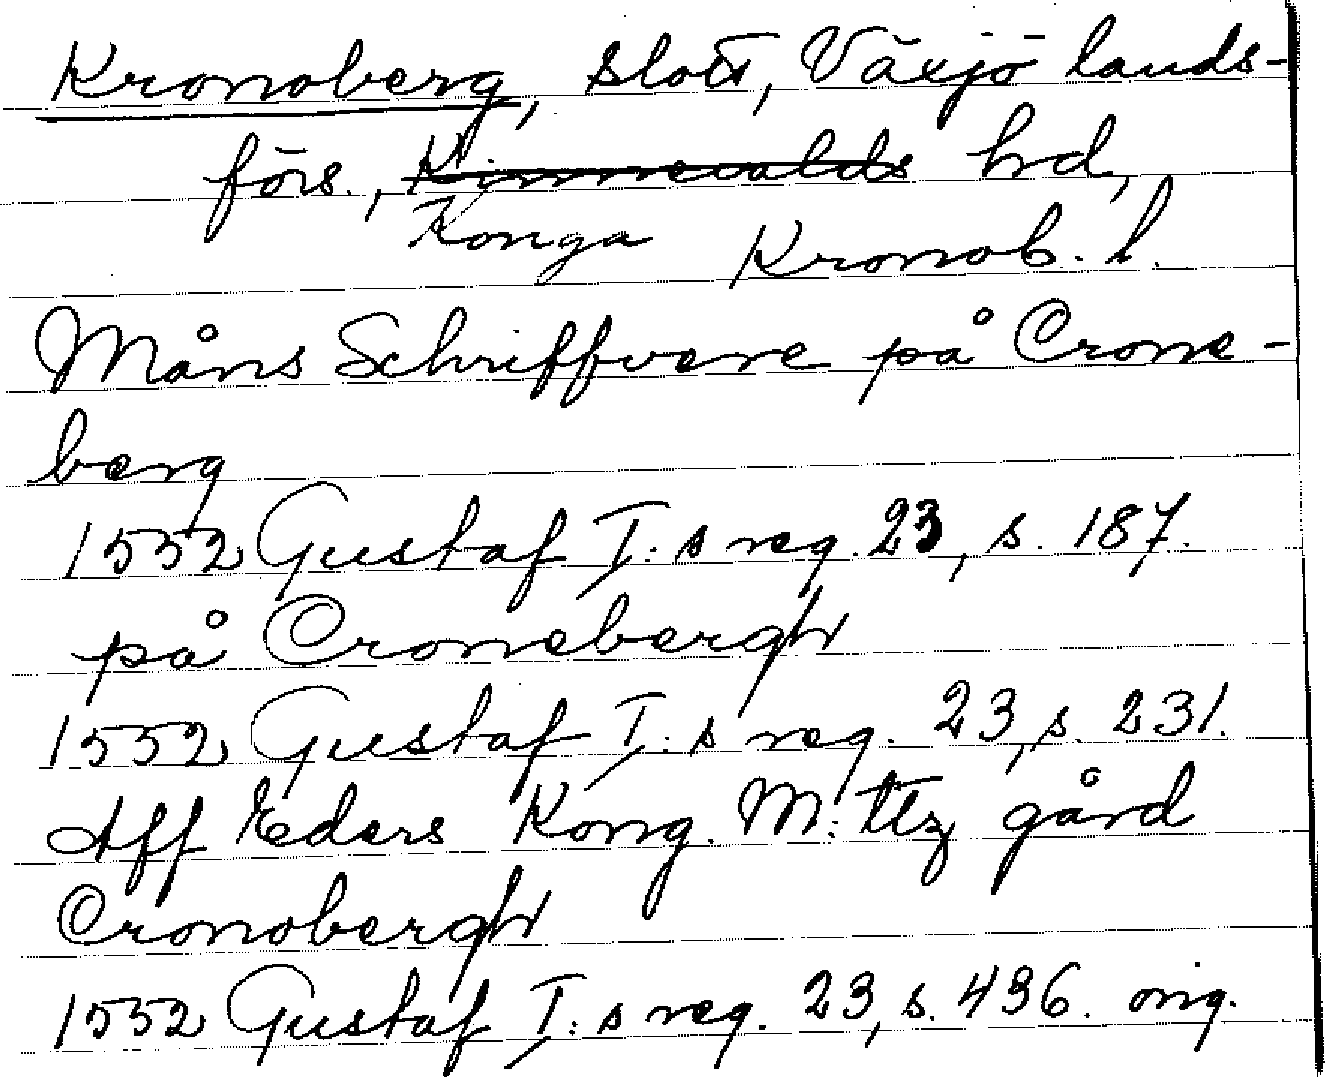 Kronoberg, slott, Växjö lands-
förs., Kinnevalds hd,
Konga Kronob. l.
Måns Schriffvere på Crone-
berg
1552 Gustaf I:s reg. 23, s. 187.
på Cronebergh
1552 Gustaf I:s reg. 23, s. 231.
Aff Eders Kong. M:ttz gård
Cronobergh
1552 Gustaf I:s reg. 23, s. 436. orig.